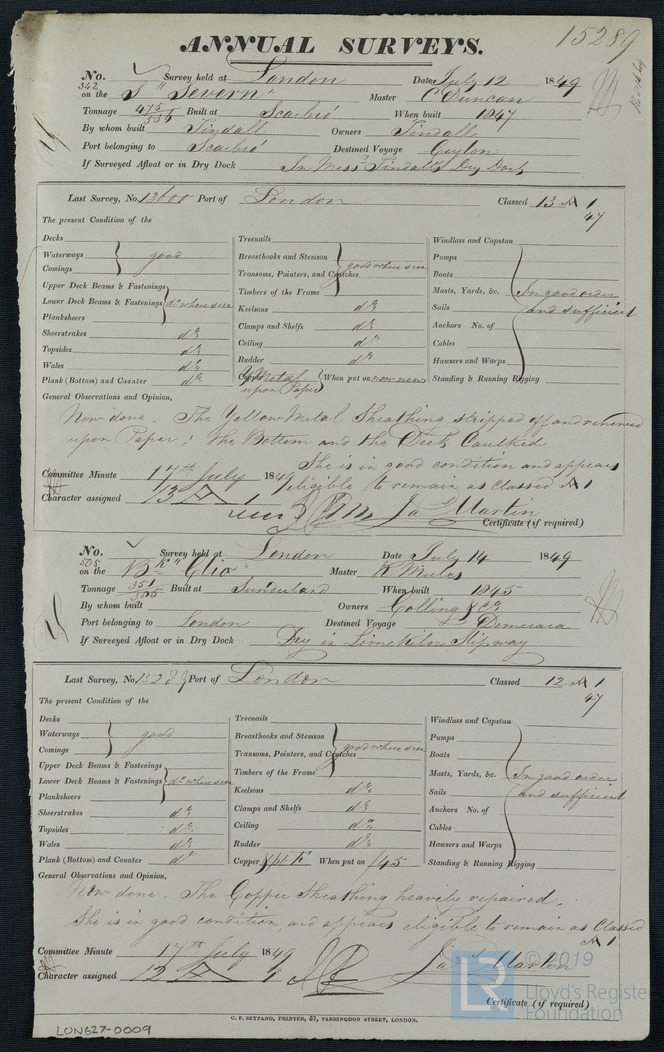 15289
ANNUAL SURVEYS.
No. Survey held at London Date July 12 1849
342 on the S "Severn" Master C Duncan
Tonnage 475/556 Built at Scarbro' When built 1847
By whom built Tindall Owners Tindall
Port belonging to Scarbro' Destined Voyage Ceylon
If Surveyed Afloat or in Dry Dock In Messrs Tindall's Dry Dock
Last Survey, No. 13600 Port of London Classed 13 A 1
47
The present Condition of the
Decks
Waterways good
Comings
Upper Deck Beams & Fastenings
Lower Deck Beams & Fastenings do where seen
Planksheers
Sheerstrakes do
Topsides do
Wales do
Plank (Bottom) and Counter do
Treenails
Breasthooks and Stemson good where seen
Transoms, Pointers, and Crutches
Timbers of the Frame
Keelsons do
Clamps and Shelfs do
Ceiling do
Rudder do
Copper Y Metal upon Paper When put on now new
Windlass and Capstan
Pumps
Boats
Masts, Yards, &c. In good order
Sails and sufficient
Anchors No. of
Cables
Hawsers and Warps
Standing & Running Rigging
General Observations and Opinion,
Now done. The Yellow Metal Sheathing stripped off and renewed
upon Paper; the Bottom and the Deck Caulked
She is in good condition and appears
Committee Minute 17th July 1849 eligible to remain as Classed A 1
Character assigned 13 A 1 Jas Martin
Certificate (if required)
No. Survey held at London Date July 14 1849
505 on the Bk "Clio" Master
Tonnage Built at Sunderland When built 1845
By whom built Owners Colling & Co
Port belonging to London Destined Voyage Demerara
If Surveyed Afloat or in Dry Dock Dry in Limekiln Slipway
Last Survey, No. 15289 Port of London Classed 12 A 1
47
The present Condition of the
Decks
Waterways good
Comings
Upper Deck Beams & Fastenings
Lower Deck Beams & Fastenings do where seen
Planksheers
Sheerstrakes do
Topsides do
Wales do
Plank (Bottom) and Counter do
Treenails
Breasthooks and Stemson good where seen
Transoms, Pointers, and Crutches
Timbers of the Frame
Keelsons do
Clamps and Shelfs do
Ceiling do
Rudder do
Copper When put on /45
Windlass and Capstan
Pumps
Boats
Masts, Yards, &c. In good order
Sails and sufficient
Anchors No. of
Cables
Hawsers and Warps
Standing & Running Rigging
General Observations and Opinion,
Now done. The Copper Sheathing heavily repaired.
She is in good condition, and appears eligible to remain as Classed
A 1
Committee Minute 17th July 1849
Character assigned 12 A 1 Jas Martin
Certificate (if required)
C. F. SEYFANG, PRINTER, 57, FARRINGDON STREET, LONDON.
LON627-0009
LR © 2019
Lloyd's Register
Foundation